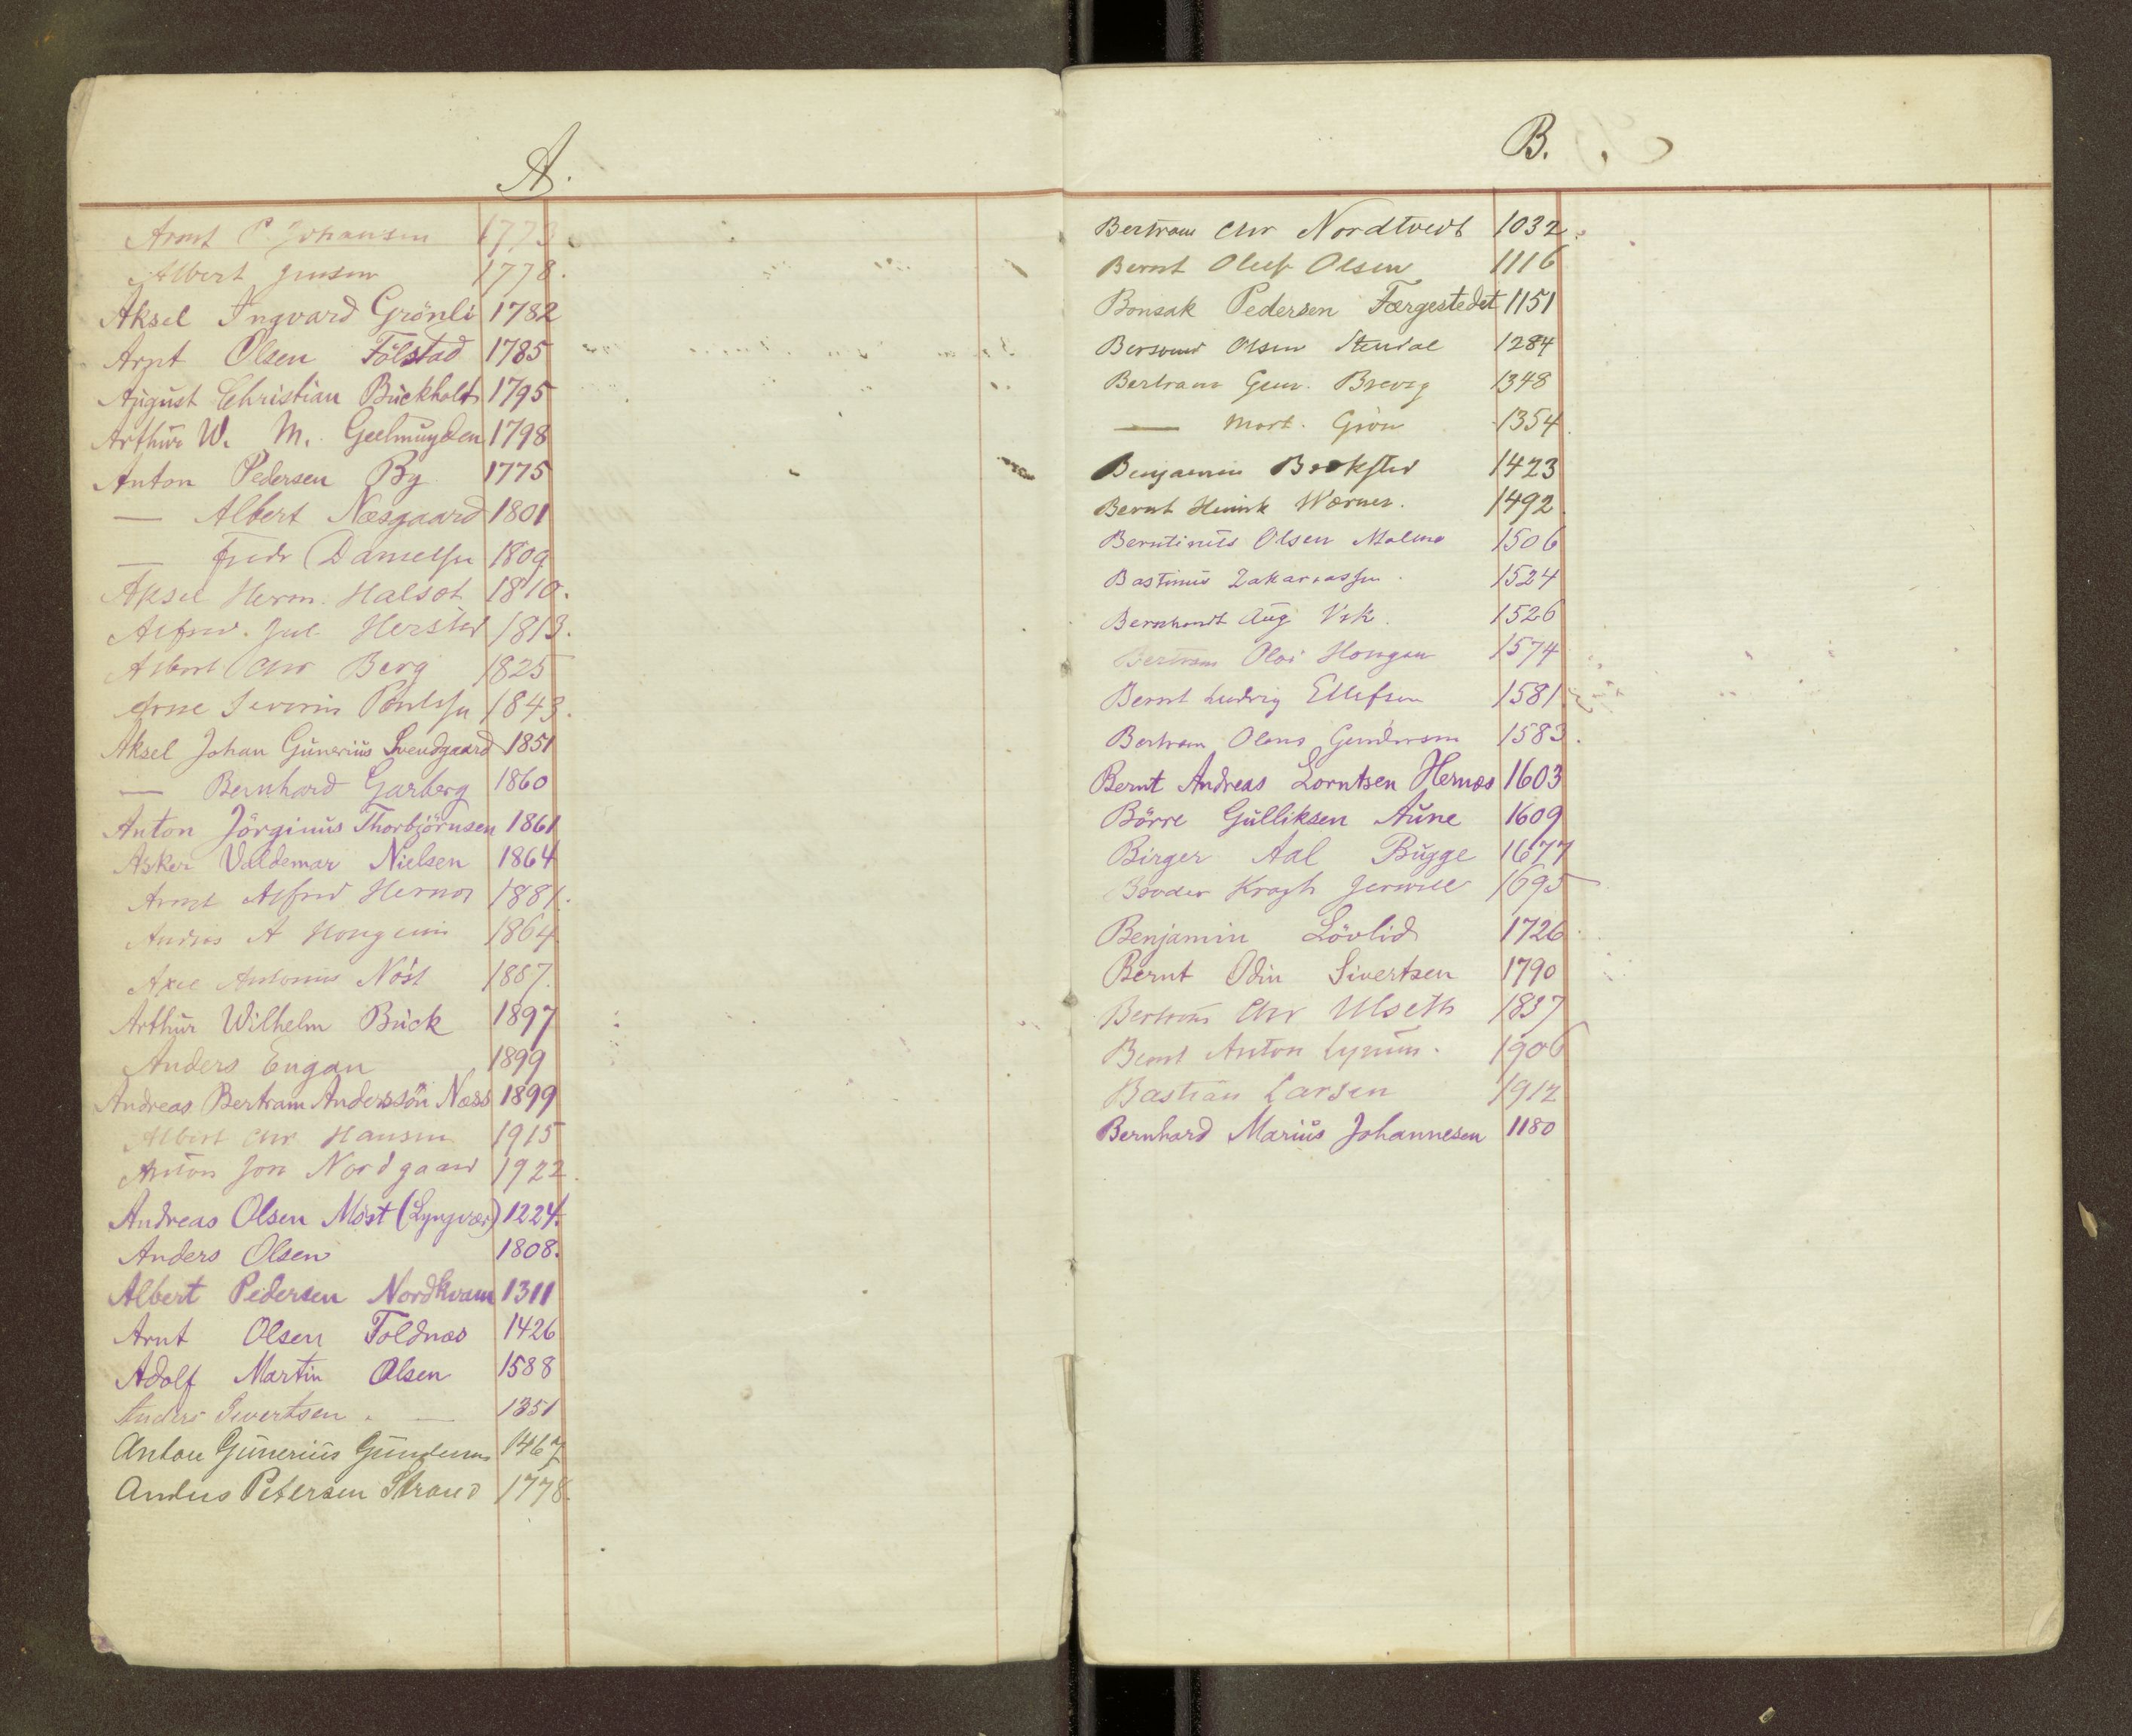 A.
Arnt P. Johansen 1773
Albert Jensen 1778.
Aksel Ingvard Grönli 1782
Arnt Olsen Fölstad 1785
August Christian Buckholt 1795
Arthur W. M. Geelmuyden 1798
Anton Pedersen By 1775
— Albert Næsgaard 1801
— Fredr Danielsen 1809
Aksel Herm. Halset 1810.
Alfred. Jul. Hersted 1813.
Albert Chr Berg 1825
Arne Severin Poulsen 1843.
Aksel Johan Gunerius Svendgaard 1851
— Bernhard Garberg 1860
Anton Jörginus Thorbjörnsen 1861
Asker Valdemar Nielsen 1864
Arnt Alfred Hernes 1881.
Andreas A 1864
Axel Antonius Nöst 1887.
Arthur Wilhelm Buck 1897
Anders Engan 1899
Andreas Bertram Anderssön Næss 1899
Albert Chr Hansen 1915
Anton Jon Nordgaard 1922.
Andreas Olsen Möst (Lyngvær) 1224.
Anders Olsen 1808.
Albert Pedersen Nordkvam 1311
Arnt Olsen Foldnæs 1426
Adolf Martin Olsen 1588
Anders Sivertsen. — 1351
Anton Gunerius 1467
Anders Petersen Strand 1778.
B.
Bertram Chr Nordtvedt 1032.
Bernt Oluf Olsen 1116
Bonsak Pedersen Færgestedet 1151
Olsen 1284
Bertram 1348
— Mort. Grön 1354.
Benjamin 1423
Bernt Henrik Wærnes. 1492.
Berntinus Olsen Malmo 1506
Bastinus Zakariassen. 1524
Bernhardt Aug Vik. 1526
Bertram Olai Hongan 1574
Bernt Ludvig Ellefsen 1581
Bertram Olaus Gundersen 1583.
Bernt Andreas Lorntsen Hernæs 1603
Börre Gulliksen Aune 1609
Birger Aal Bugge 1677
Kragh 1695
Benjamin Lövlid 1726
Bernt Odin Sivertsen 1790
Bertram Chr Ulseth 1837
Bernt Anton Lynum. 1906
Bastian Larsen 1912
Bernhard Marius Johannesen 1180